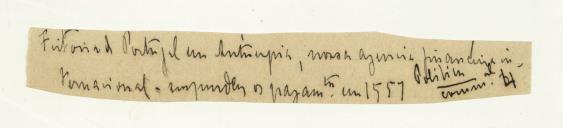 Feitoria de Portugal em Antuerpia, nossa agencia financeira in-
ternacional - suspendeu os pagamtos em 1557 Politica